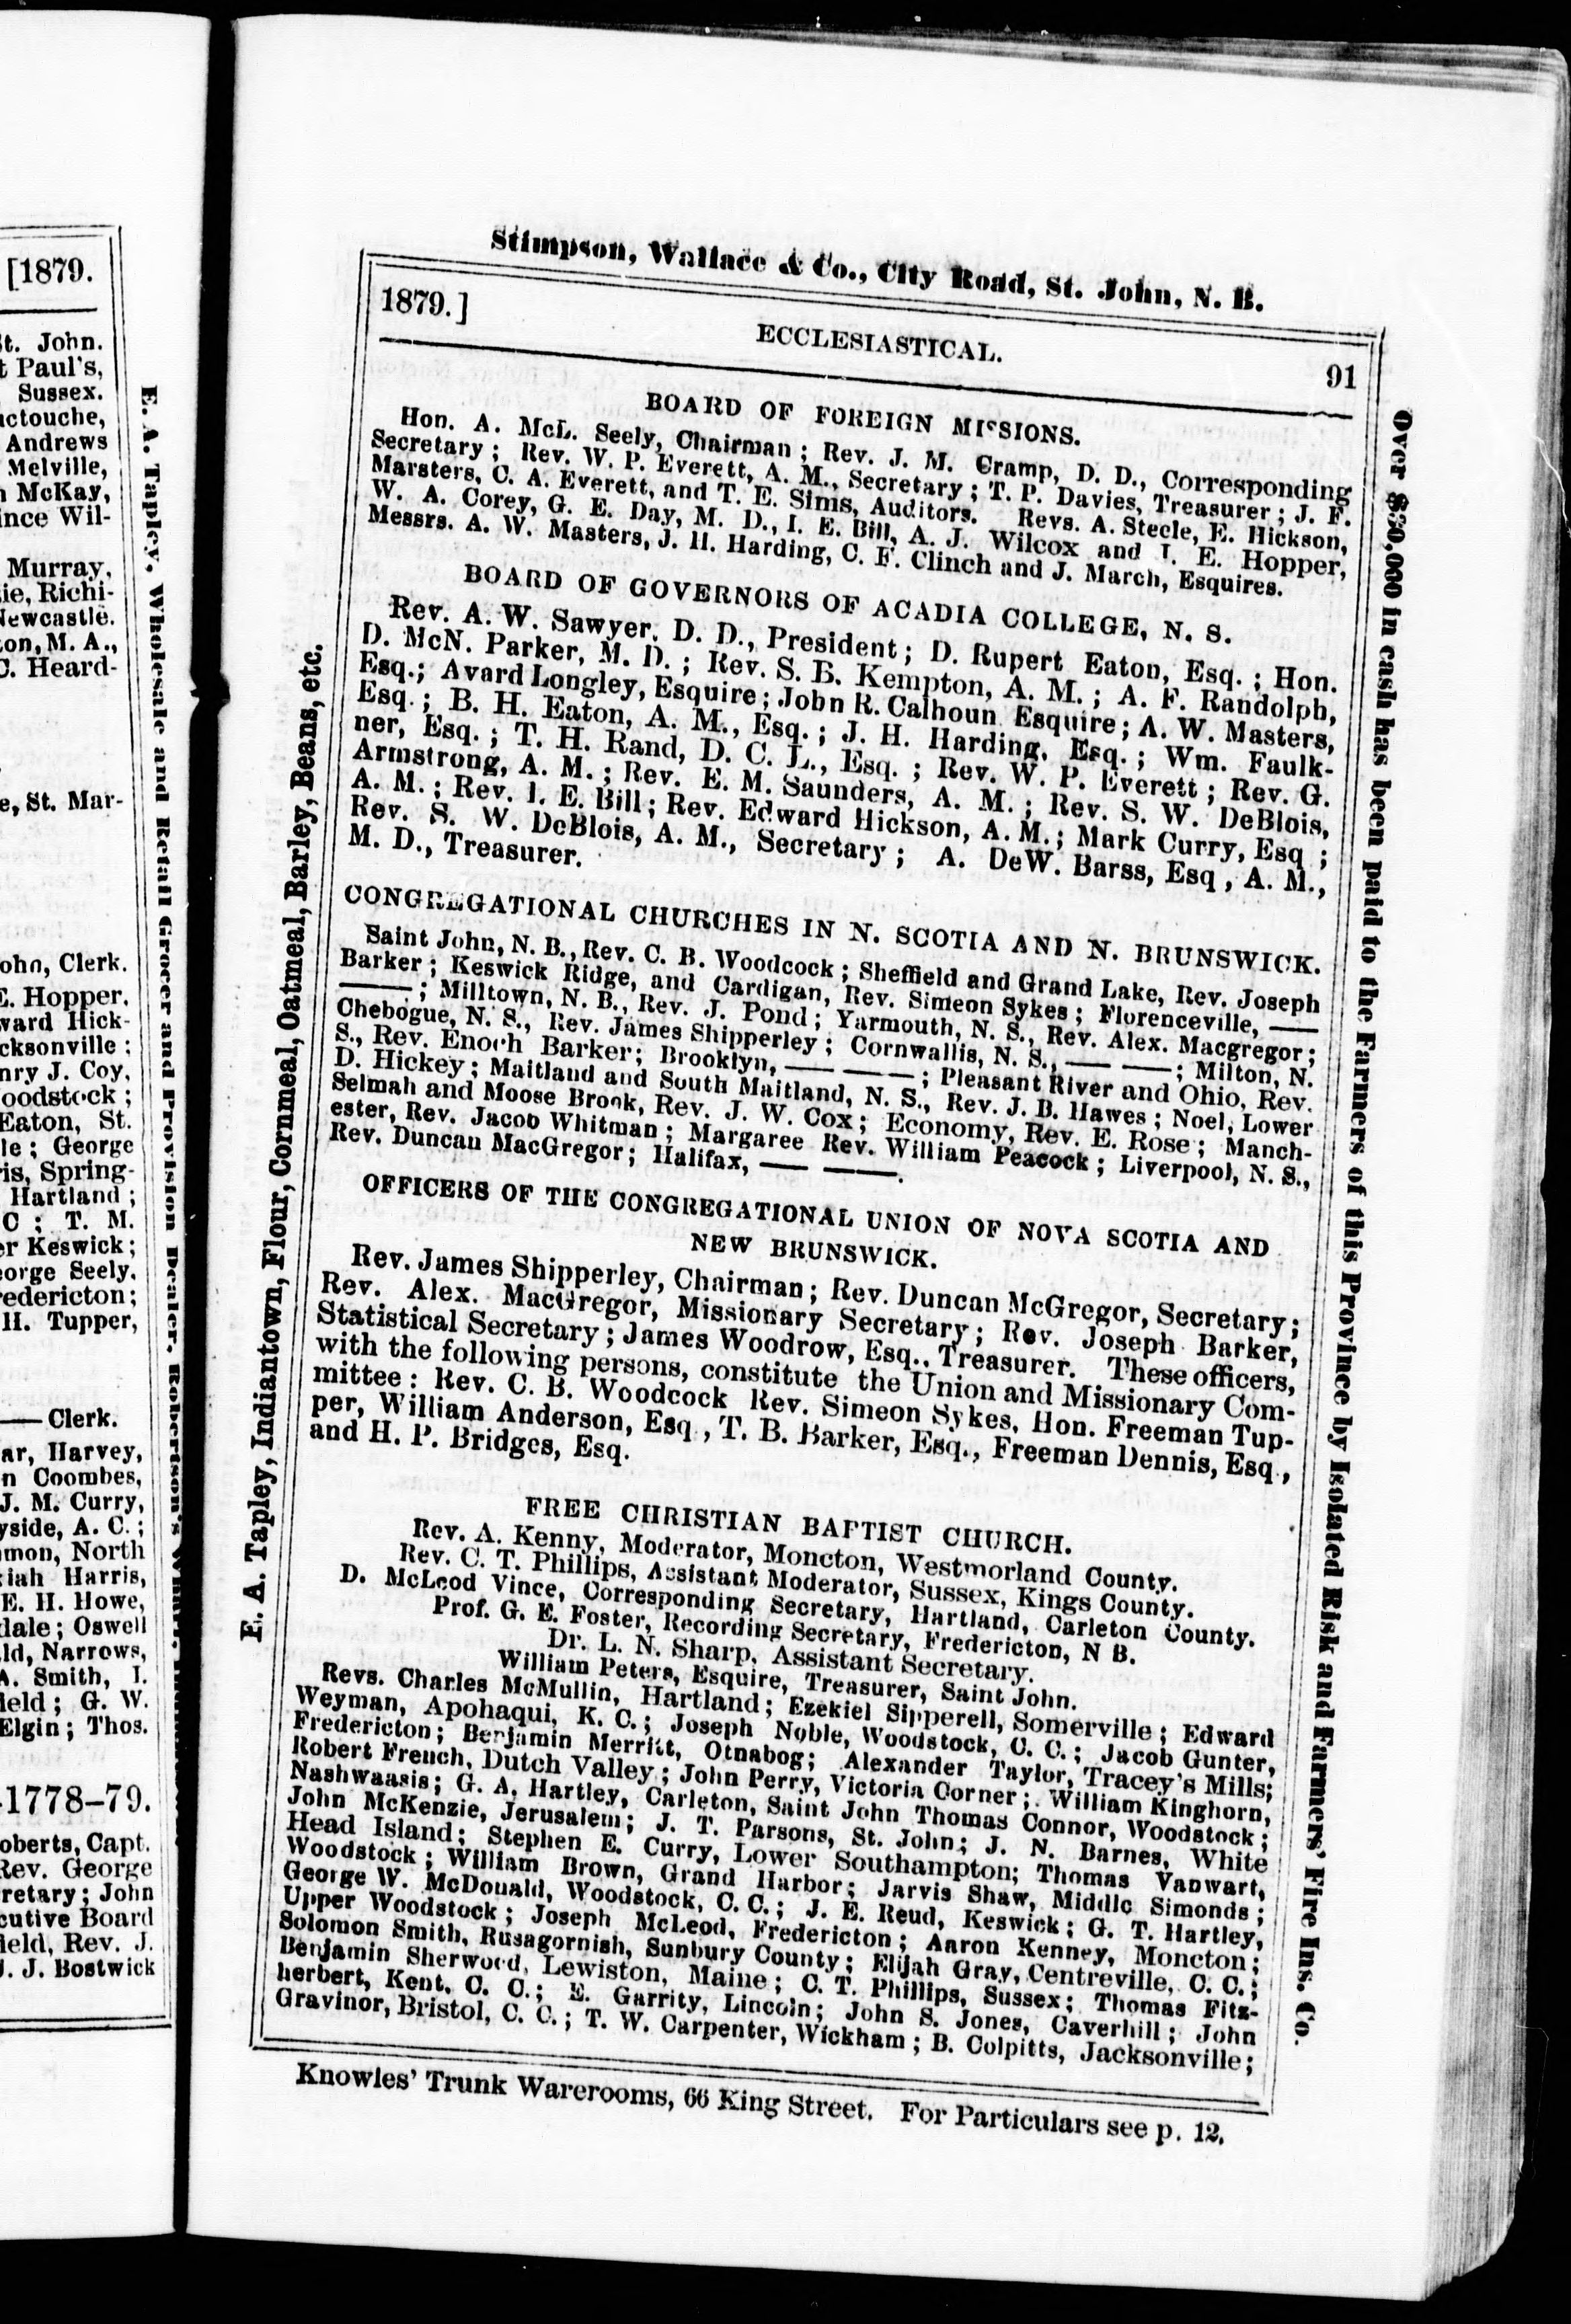 [1879.
St. John.
t Paul's,
Sussex.
uctouche,
Andrews
Melville,
McKay,
ince Wil-
Murray,
ie, Richi-
Newcastle.
ton, M. A.,
C. Heard-
e, St. Mar-
ohn, Clerk.
E. Hopper.
ward Hick-
cksonville ;
nry J. Coy,
oodstock ;
Eaton, St.
le ; George
is, Spring-
Hartland ;
C ; T. M.
er Keswick ;
eorge Seely.
redericton ;
H. Tupper,
—— Clerk.
ar, Harvey,
n Coombes,
J. M. Curry,
yside, A. C. ;
mon, North
iah Harris,
E. H. Howe,
dale ; Oswell
ld, Narrows,
A. Smith, I.
ield ; G. W.
Elgin ; Thos.
1778-79.
oberts, Capt.
Rev. George
retary ; John
cutive Board
ield, Rev. J.
J. J. Bostwick
E. A. Tapley, Wholesale and Retail Grocer and Provision Dealer, Robertson's
Stimpson, Wallace & Co., City Road, St. John, N. B.
1879.] ECCLESIASTICAL. 91
BOARD OF FOREIGN MISSIONS.
Hon. A. McL. Seely, Chairman ; Rev. J. M. Cramp, D. D., Corresponding
Secretary ; Rev. W. P. Everett, A. M., Secretary ; T. P. Davies, Treasurer ; J. F.
Marsters, C. A. Everett, and T. E. Sims, Auditors. Revs. A. Steele, E. Hickson,
W. A. Corey, G. E. Day, M. D., I. E. Bill, A. J. Wilcox and J. E. Hopper,
Messrs. A. W. Masters, J. H. Harding, C. F. Clinch and J. March, Esquires.
BOARD OF GOVERNORS OF ACADIA COLLEGE, N. S.
Rev. A. W. Sawyer, D. D., President ; D. Rupert Eaton, Esq. ; Hon.
D. McN. Parker, M. D. ; Rev. S. B. Kempton, A. M. ; A. F. Randolph,
Esq.; Avard Longley, Esquire ; John R. Calhoun Esquire ; A. W. Masters,
Esq. ; B. H. Eaton, A. M., Esq. ; J. H. Harding, Esq. ; Wm. Faulk-
ner, Esq. ; T. H. Rand, D. C. L., Esq. ; Rev. W. P. Everett ; Rev. G.
Armstrong, A. M. ; Rev. E. M. Saunders, A. M. ; Rev. S. W. DeBlois,
A. M. ; Rev. I. E. Bill ; Rev. Edward Hickson, A. M. ; Mark Curry, Esq ;
Rev. S. W. DeBlois, A. M., Secretary ; A. DeW. Barss, Esq , A. M.,
M. D., Treasurer.
CONGREGATIONAL CHURCHES IN N. SCOTIA AND N. BRUNSWICK.
Saint John, N. B., Rev. C. B. Woodcock ; Sheffield and Grand Lake, Rev. Joseph
Barker ; Keswick Ridge, and Cardigan, Rev. Simeon Sykes ; Florenceville, ——
—— ; Milltown, N. B., Rev. J. Pond ; Yarmouth, N. S., Rev. Alex. Macgregor ;
Chebogue, N. S., Rev. James Shipperley ; Cornwallis, N. S., —— —— ; Milton, N.
S., Rev. Enoch Barker ; Brooklyn, —— —— ; Pleasant River and Ohio, Rev.
D. Hickey ; Maitland and South Maitland, N. S., Rev. J. B. Hawes ; Noel, Lower
Selmah and Moose Brook, Rev. J. W. Cox ; Economy, Rev. E. Rose ; Manch-
ester, Rev. Jacob Whitman ; Margaree Rev. William Peacock ; Liverpool, N. S.,
Rev. Duncan MacGregor ; Halifax, —— ——.
OFFICERS OF THE CONGREGATIONAL UNION OF NOVA SCOTIA AND
NEW BRUNSWICK.
Rev. James Shipperley, Chairman ; Rev. Duncan McGregor, Secretary ;
Rev. Alex. MacGregor, Missionary Secretary ; Rev. Joseph Barker,
Statistical Secretary ; James Woodrow, Esq., Treasurer. These officers,
with the following persons, constitute the Union and Missionary Com-
mittee : Rev. C. B. Woodcock Rev. Simeon Sykes, Hon. Freeman Tup-
per, William Anderson, Esq , T. B. Barker, Esq., Freeman Dennis, Esq ,
and H. P. Bridges, Esq.
FREE CHRISTIAN BAPTIST CHURCH.
Rev. A. Kenny, Moderator, Moncton, Westmorland County.
Rev. C. T. Phillips, Assistant Moderator, Sussex, Kings County.
D. McLeod Vince, Corresponding Secretary, Hartland, Carleton County.
Prof. G. E. Foster, Recording Secretary, Fredericton, N B.
Dr. L. N. Sharp, Assistant Secretary.
William Peters, Esquire, Treasurer, Saint John.
Revs. Charles McMullin, Hartland ; Ezekiel Sipperell, Somerville ; Edward
Weyman, Apohaqui, K. C. ; Joseph Noble, Woodstock, C. C. ; Jacob Gunter,
Fredericton ; Benjamin Merritt, Otnabog ; Alexander Taylor, Tracey's Mills ;
Robert French, Dutch Valley ; John Perry, Victoria Corner ; William Kinghorn,
Nashwaasis ; G. A. Hartley, Carleton, Saint John Thomas Connor, Woodstock ;
John McKenzie, Jerusalem ; J. T. Parsons, St. John ; J. N. Barnes, White
Head Island ; Stephen E. Curry, Lower Southampton ; Thomas Vanwart,
Woodstock ; William Brown, Grand Harbor ; Jarvis Shaw, Middle Simonds ;
George W. McDonald, Woodstock, C. C. ; J. E. Reud, Keswick ; G. T. Hartley,
Upper Woodstock ; Joseph McLeod, Fredericton ; Aaron Kenney, Moncton ;
Solomon Smith, Rusagornish, Sunbury County ; Elijah Gray, Centreville, C. C. ;
Benjamin Sherwood, Lewiston, Maine ; C. T. Phillips, Sussex ; Thomas Fitz-
herbert, Kent, C. C. ; E. Garrity, Lincoln ; John S. Jones, Caverhill ; John
Gravinor, Bristol, C. C. ; T. W. Carpenter, Wickham ; B. Colpitts, Jacksonville ;
Knowles' Trunk Warerooms, 66 King Street. For Particulars see p. 12.
E. A. Tapley, Indiantown, Flour, Cornmeal, Oatmeal, Barley, Beans, etc.
Over $30,000 in cash has been paid to the Farmers of this Province by Isolated Risk and Farmers' Fire Ins. Co.